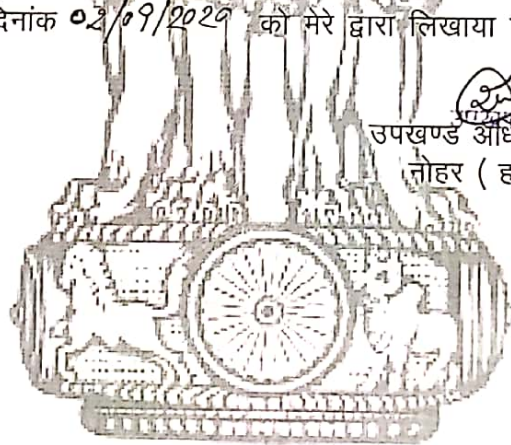 दिनांक 02/09/2020 को मेरे द्वारा लिखाया
उपखण्ड अधि
नोहर ( ह